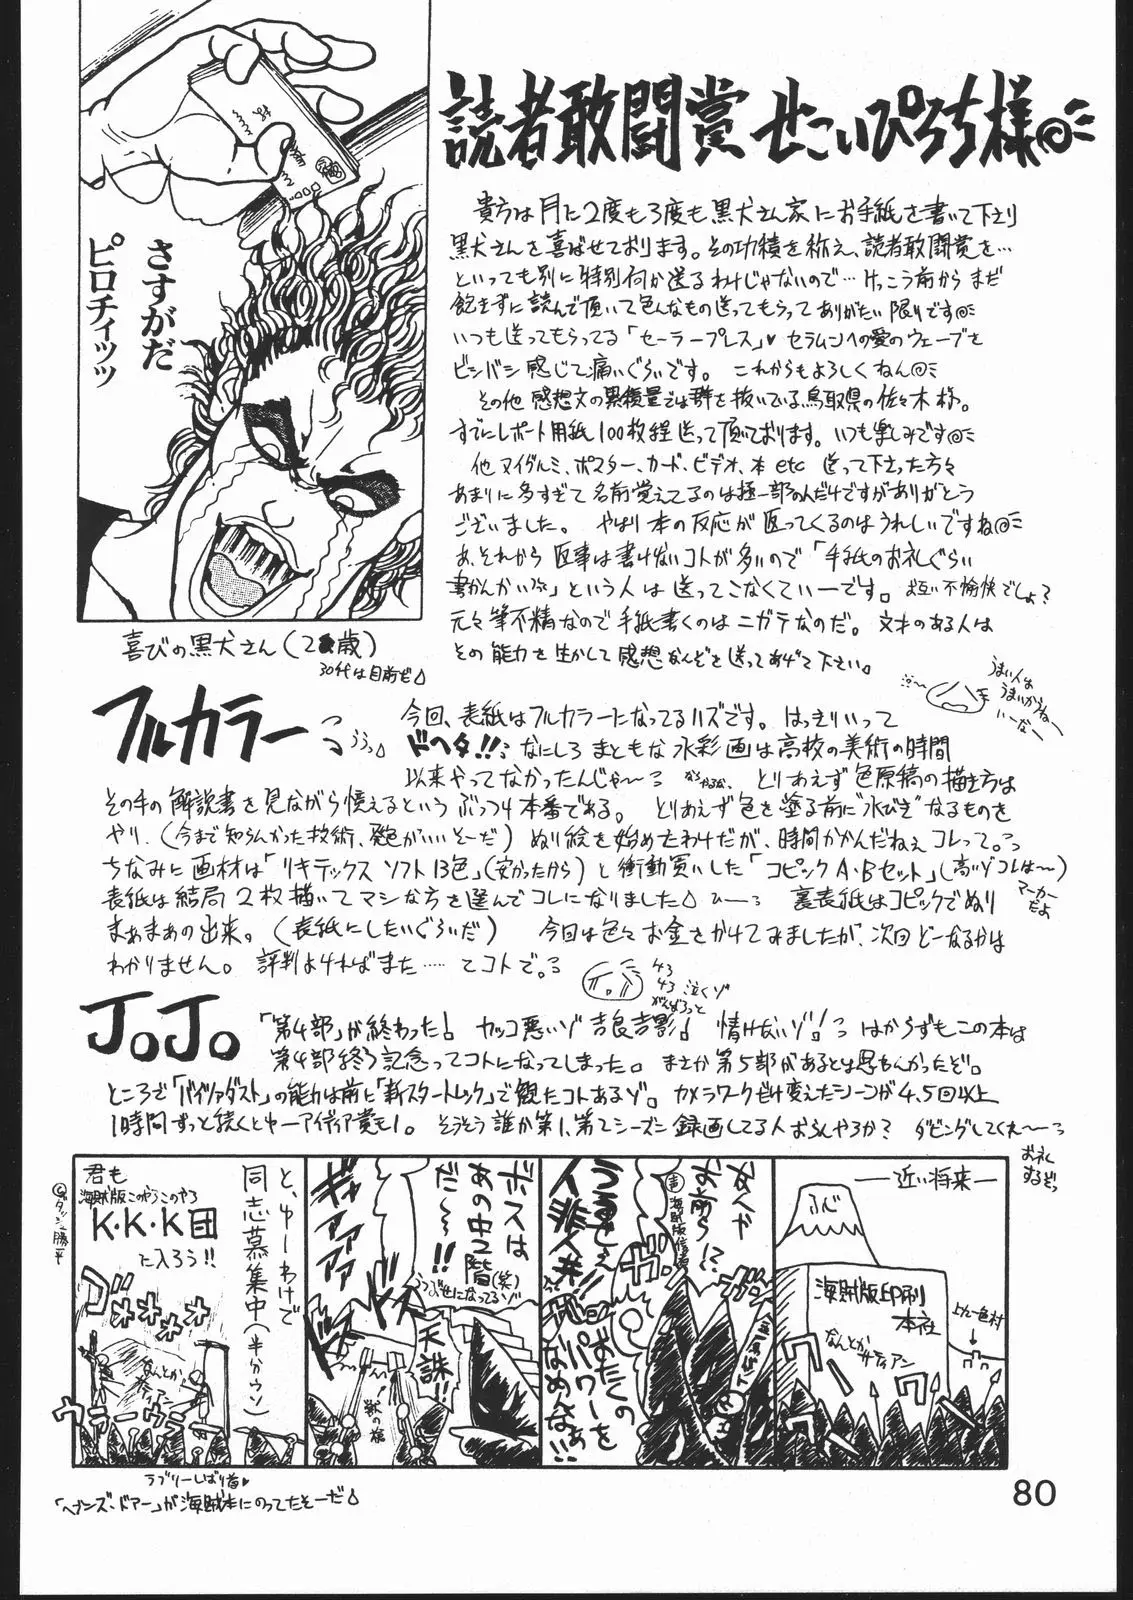 読者敢闘賞 せこいぴろち様
さすがだ
ピロチィッツ
喜びの黒犬さん(2 歳)
30代は目前だ
貴方は月に2度も3度も黒犬さん家にお手紙を書いて下さり
黒犬さんを喜ばせております。その功積を称え、読者敢闘賞を…
といっても別に特別何か送るわけじゃないので…けっこう前からまだ
飽きずに読んで頂いて色んなもの送ってもらってありがたい限りです
いつも送ってもらってる「セーラープレス」♥セラムンへの愛のウェーブを
ビシバシ感じて痛いぐらいです。これからもよろしくねん
その他感想文の累積量では群を抜いている鳥取県の佐々木様。
すでにレポート用紙100枚程送って頂いております。いつも楽しみです
他ヌイグルミ、ポスター、カード、ビデオ、本etc 送って下さった方々
あまりに多すぎて名前覚えてるのは極一部のんだけですがありがとう
ございました。やはり本の反応が返ってくるのはうれしいですね
あ、それから返事は書けないコトが多いので「手紙のお礼ぐらい
書かんかい」という人は送ってこなくていーです。お互い不愉快でしょ?
元々筆不精なので手紙書くのはニガテなのだ。文才のある人は
その能力を生かして感想なんぞを送ってあげて下さい。
うまい人は
うまいからねー
いーなー
フルカラー
今回、表紙はフルカラーになってるハズです。はっきりいって
ドヘタ!!なにしろまともな水彩画は高校の美術の時間
以来やってなかったんじゃ〜 とりあえず色原稿の描き方は
その手の解説書を見ながら憶えるというぶっつけ本番である。とりあえず色を塗る前に"水びき"なるものを
やり、(今まで知らんかった技術、発色がいいそーだ)ぬり絵を始めたわけだが、時間かかんだねぇコレって。
ちなみに画材は「リキテックス ソフト13色」(安かったから)と衝動買いした「コピックA・Bセット」(高いゾコレは〜)
マーカーだよ
表紙は結局2枚描いてマシな方を選んでコレになりました 裏表紙はコピックでぬり
まあまあの出来。(表紙にしたいぐらいだ) 今回は色々お金をかけてみましたが、次回どーなるかは
わかりません。評判よければまた……てコトで。
泣くゾ
JoJo
「第4部」が終わった! カッコ悪いゾ吉良吉影! 情けないゾ! はからずもこの本は
第4部終了記念ってコトになってしまった。まさか第5部があるとは思わんかったぞ。
ところで「バイツァダスト」の能力は前に「新スタートレック」で観たコトあるゾ。カメラワークだけ変えたシーンが4、5回以上
1時間ずっと続くとゆーアイディア賞モノ。そうそう誰か第1、第2シーズン録画してる人おらんやろか? ダビングしてくれ〜
お礼
するぞっ
―近い将来―
ふじ
海賊版印刷
本社
上九一色村
なんとか
サティアン
ワー
なんや
お前ら!?
海賊版信者
うるせぇ
人非人共!!
おたくの
パワーを
なめんなぁ!!
ボスは
あの中2階(笑)
だ〜!!
天誅!!
ギャアアアア
と、ゆーわけで
同志募集中(半分ウソ)
君も
海賊版このやろこのやろ
K・K・K団
に入ろう!!
なんとか
サティアン
ラブリーしばり首♥
「ヘブンズ・ドアー」が海賊本にのってたそーだ
80